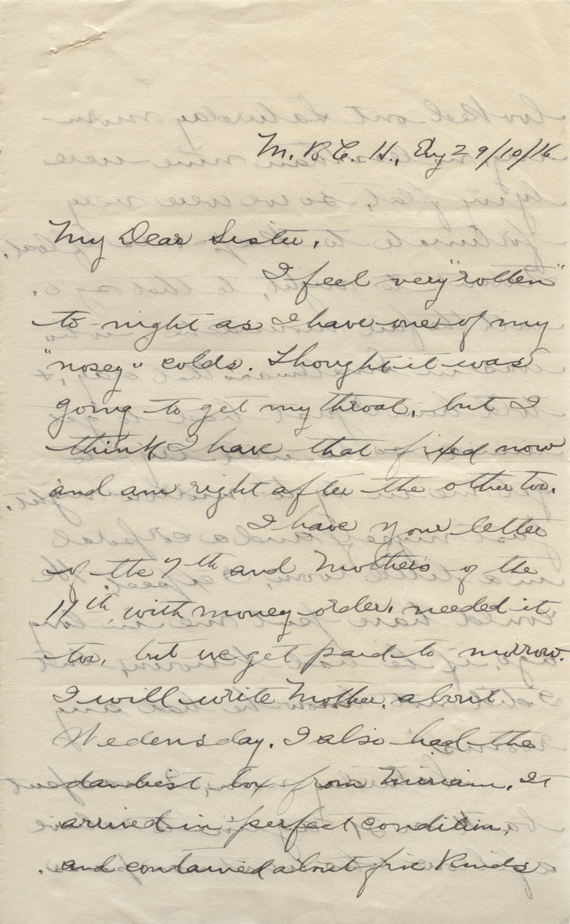 M. B. C. H., Eng 29/10/16
My Dear Sister.
I feel very "rotten"
to-night as I have one of my
"nosey" colds. Thought it was
going to get my throat, but I
think I have that fixed now
and am right after the other too.
I have your letter
of the 7th and Mothers of the
11th, with money order, needed it
too, but we get paid to-morrow.
I will write Mother, about
Wedensday. I also had the
dandiest, box from Miriam. It
arrived in perfect condition,
and contained about five kinds